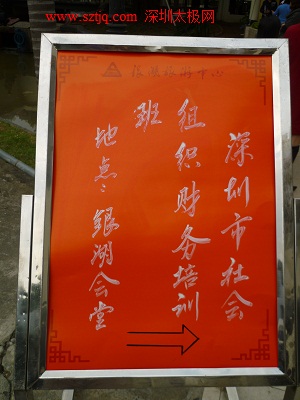 www.sztjq.com 深圳太极网
银湖旅游中心
深圳市社会
组织财务培训
班
地点：银湖会堂